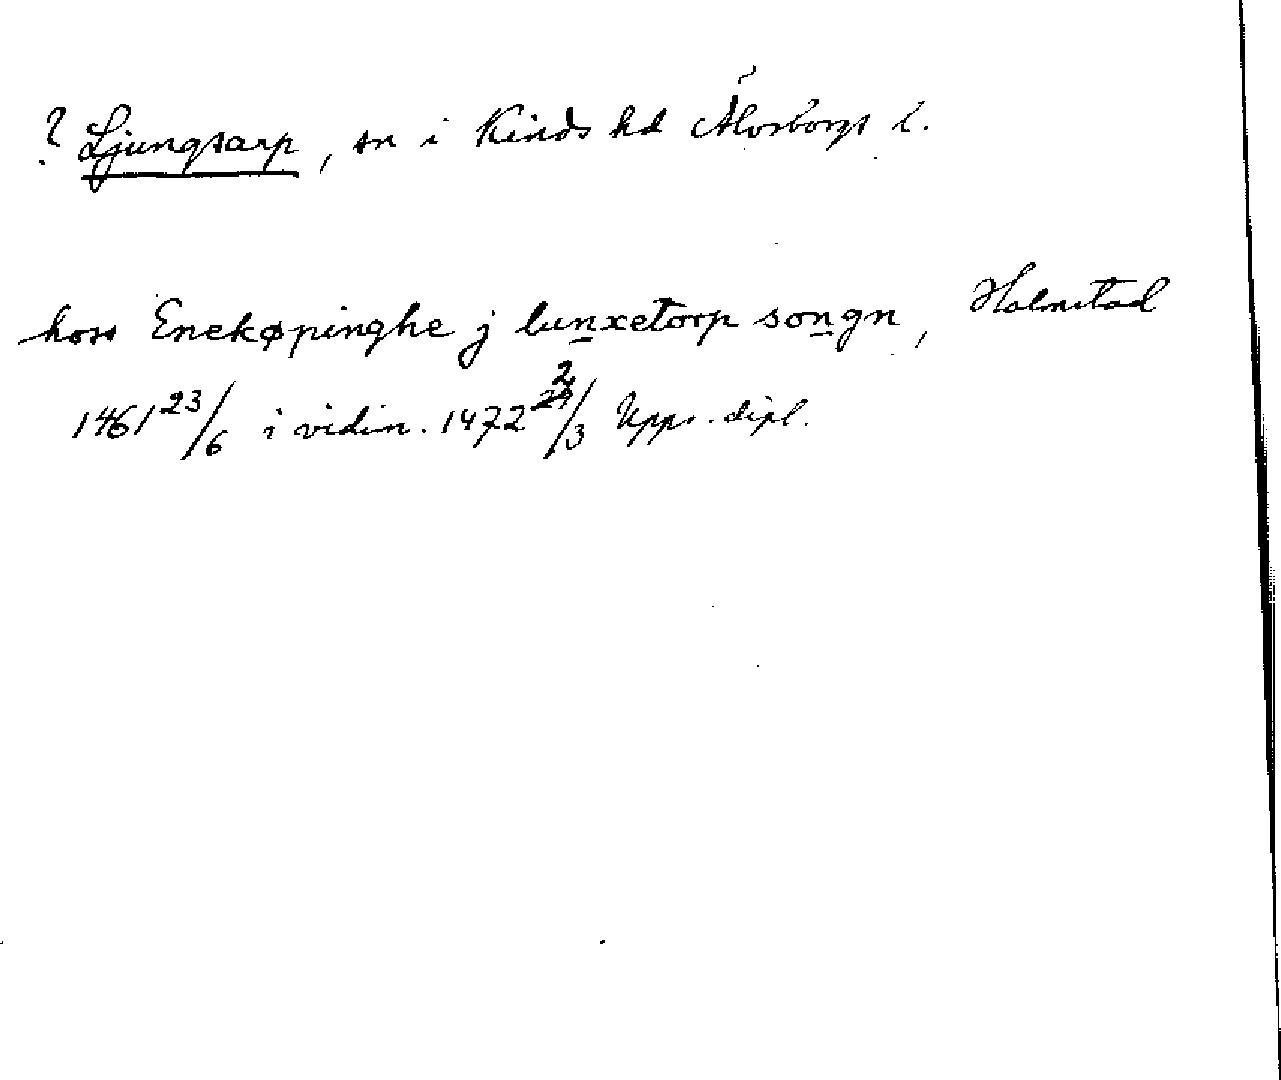 ? Ljungsarp, sn i Kinds hd Älvsborgs l.
hoss Enekøpinghe j lunxetorp songn, Halmstad
1461 23/6 i vidim. 1472 2/3 Upps. dipl.